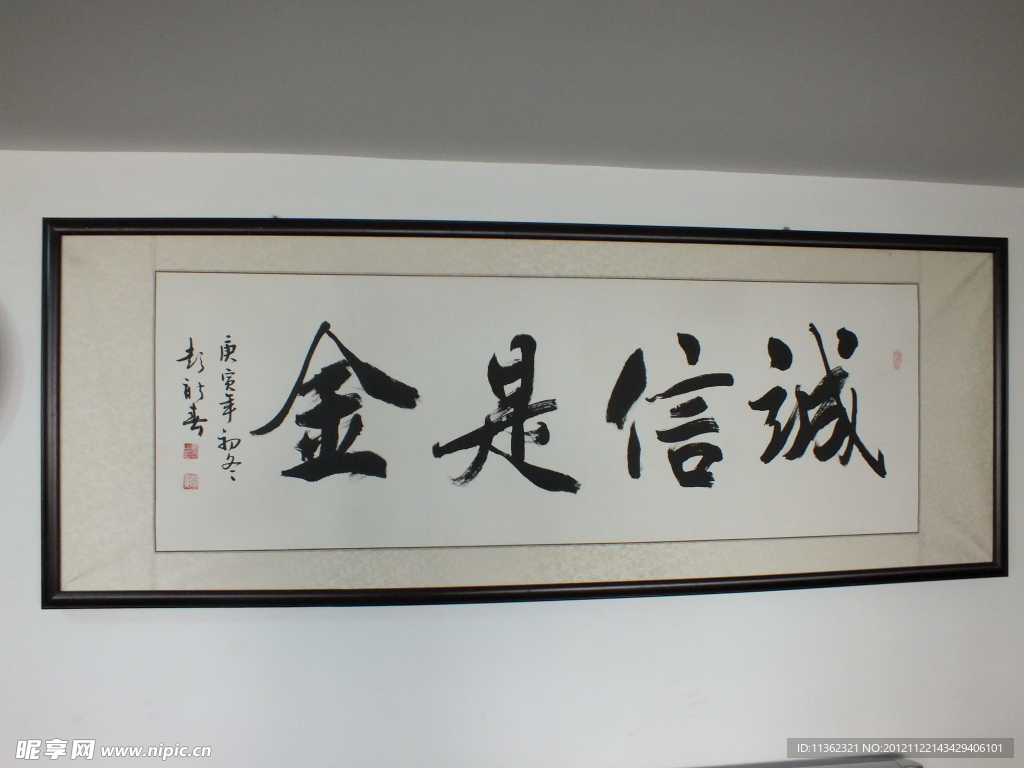 誠信是金
庚寅年初冬
彭新春
昵享网 www.nipic.cn
ID:11362321 NO:20121122143429406101